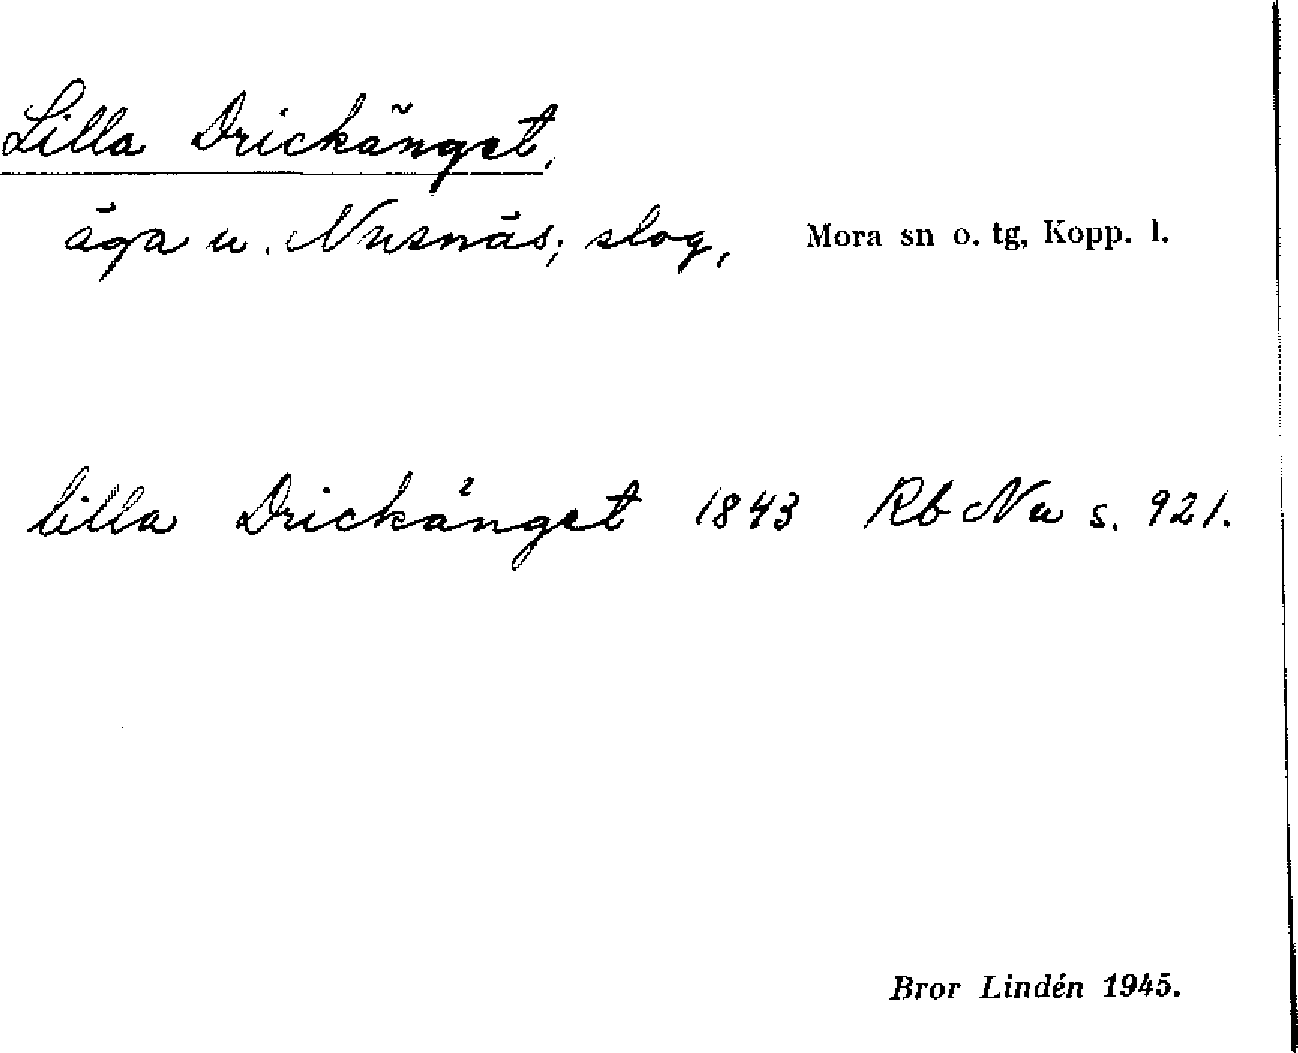 Lilla Drickänget,
äga u. Nusnäs; slog, Mora sn o. tg, Kopp. l.
lilla Drickänget 1843 Rb Nu s. 921.
Bror Lindén 1945.